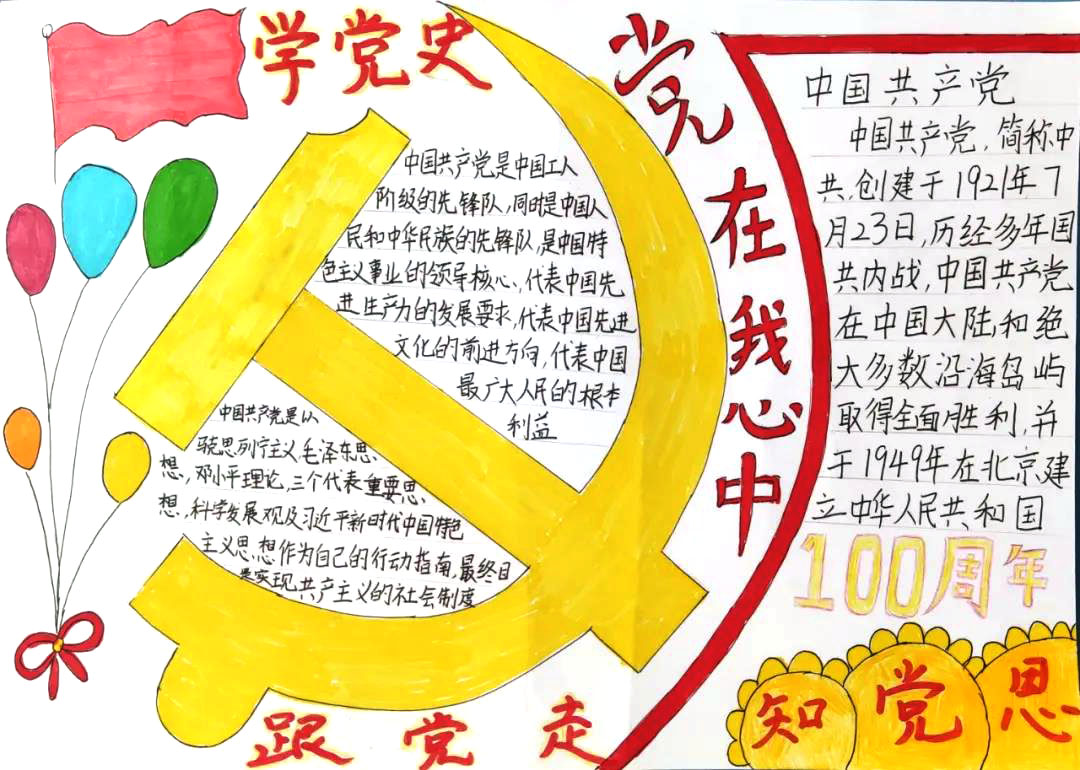 学党史
中国共产党是中国工人
阶级的先锋队,同时是中国人
民和中华民族的先锋队,是中国特
色主义事业的领导核心,代表中国先
进生产力的发展要求,代表中国先进
文化的前进方向,代表中国
最广大人民的根本
利益
中国共产党是以
骁思列宁主义,毛泽东思、
想,邓小平理论,三个代表重要思、
想,科学发展观及习近平新时代中国特色
主义思想作为自己的行动指南,最终目
是实现共产主义的社会制度
跟党走
党在我心中
中国共产党
中国共产党,简称中
共,创建于1921年7
月23日,历经多年国
共内战,中国共产党
在中国大陆和绝
大多数沿海岛屿
取得全面胜利,并
于1949年在北京建
立中华人民共和国
100周年
知党恩